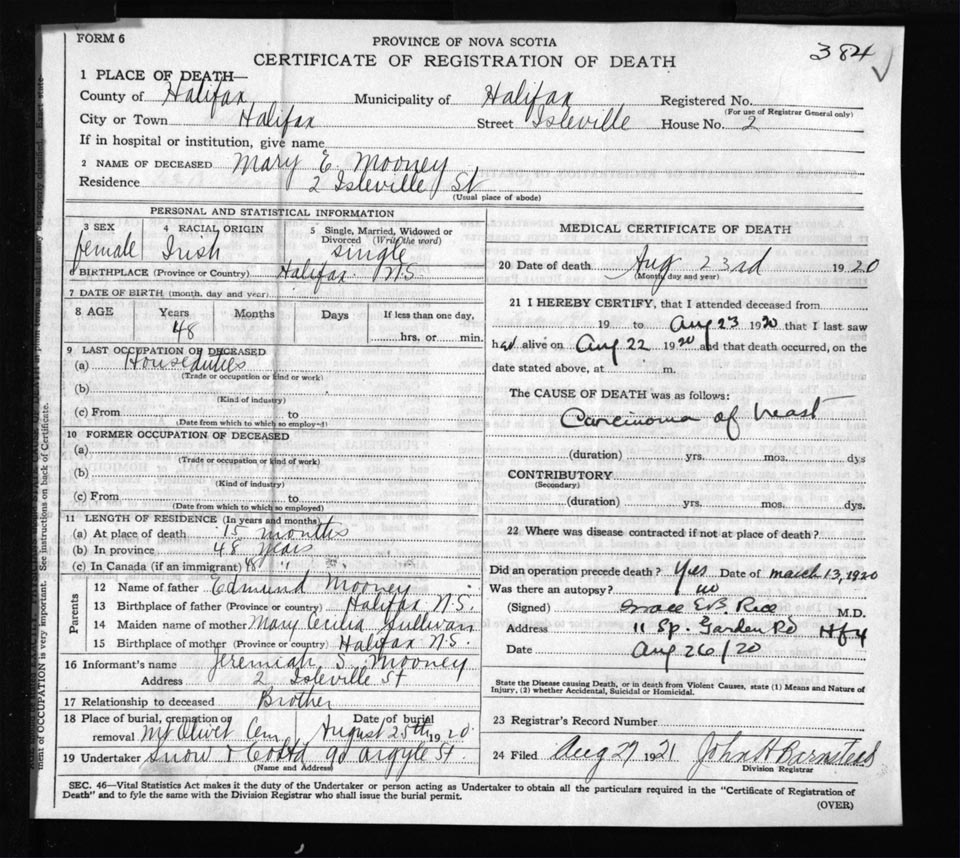 FORM 6
PROVINCE OF NOVA SCOTIA
384 ✓
CERTIFICATE OF REGISTRATION OF DEATH
1 PLACE OF DEATH—
County of Halifax Municipality of Halifax Registered No.
(For use of Registrar General only)
City or Town Halifax Street Isleville House No. 2
If in hospital or institution, give name
2 NAME OF DECEASED Mary E. Mooney
Residence 2 Isleville St
(Usual place of abode)
PERSONAL AND STATISTICAL INFORMATION
3 SEX 4 RACIAL ORIGIN 5 Single, Married, Widowed or Divorced (Write the word)
female Irish single
6 BIRTHPLACE (Province or Country) Halifax N.S.
7 DATE OF BIRTH (month, day and year)
8 AGE Years Months Days If less than one day,
48 hrs. or min.
9 LAST OCCUPATION OF DECEASED
(a) House duties
(Trade or occupation or kind or work)
(b)
(Kind of industry)
(c) From to
(Date from which to which so employed)
10 FORMER OCCUPATION OF DECEASED
(a)
(Trade or occupation or kind of work)
(b)
(Kind of industry)
(c) From to
(Date from which to which so employed)
11 LENGTH OF RESIDENCE (In years and months)
(a) At place of death 15 months
(b) In province 48 years
(c) In Canada (if an immigrant) 48 "
Parents
12 Name of father Edmund Mooney
13 Birthplace of father (Province or country) Halifax N.S.
14 Maiden name of mother Mary Cecilia Sullivan
15 Birthplace of mother (Province or country) Halifax N.S.
16 Informant's name Jeremiah S. Mooney
Address 2 Isleville St
17 Relationship to deceased Brother
18 Place of burial, cremation or removal Mt Olivet Cem Date of burial August 25th 1920
19 Undertaker Snow & 90 Argyle St.
(Name and Address)
MEDICAL CERTIFICATE OF DEATH
20 Date of death Aug 23rd 1920
(Month, day and year)
21 I HEREBY CERTIFY, that I attended deceased from
19 to Aug 23 1920 that I last saw
h alive on Aug 22 1920 and that death occurred, on the
date stated above, at m.
The CAUSE OF DEATH was as follows:
Carcinoma of
(duration) yrs. mos. dys
CONTRIBUTORY
(Secondary)
(duration) yrs. mos. dys.
22 Where was disease contracted if not at place of death?
Did an operation precede death? Yes Date of March 13, 1920
Was there an autopsy? no
(Signed) Grace E.B. Rice M.D.
Address 11 Sp. Garden Rd Hfx
Date Aug 26/20
State the Disease causing Death, or in death from Violent Causes, state (1) Means and Nature of
Injury, (2) whether Accidental, Suicidal or Homicidal.
23 Registrar's Record Number
24 Filed Aug 27 1921 John H Barnstead
Division Registrar
SEC. 46—Vital Statistics Act makes it the duty of the Undertaker or person acting as Undertaker to obtain all the particulars required in the "Certificate of Registration of
Death" and to fyle the same with the Division Registrar who shall issue the burial permit.
(OVER)
ment of OCCUPATION is very important. See instructions on back of Certificate.